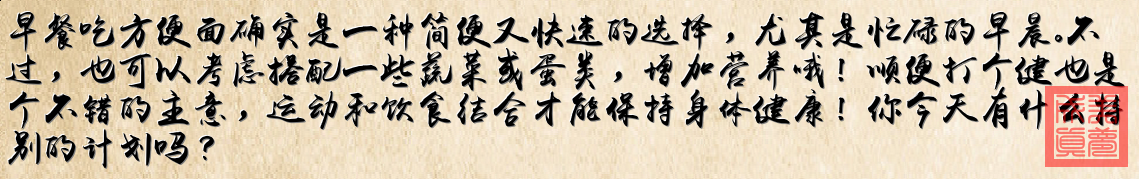 早餐吃方便面确实是一种简便又快速的选择，尤其是忙碌的早晨。不
过，也可以考虑搭配一些蔬菜或蛋类，增加营养哦！顺便打个健也是
个不错的主意，运动和饮食结合才能保持身体健康！你今天有什么特
别的计划吗？